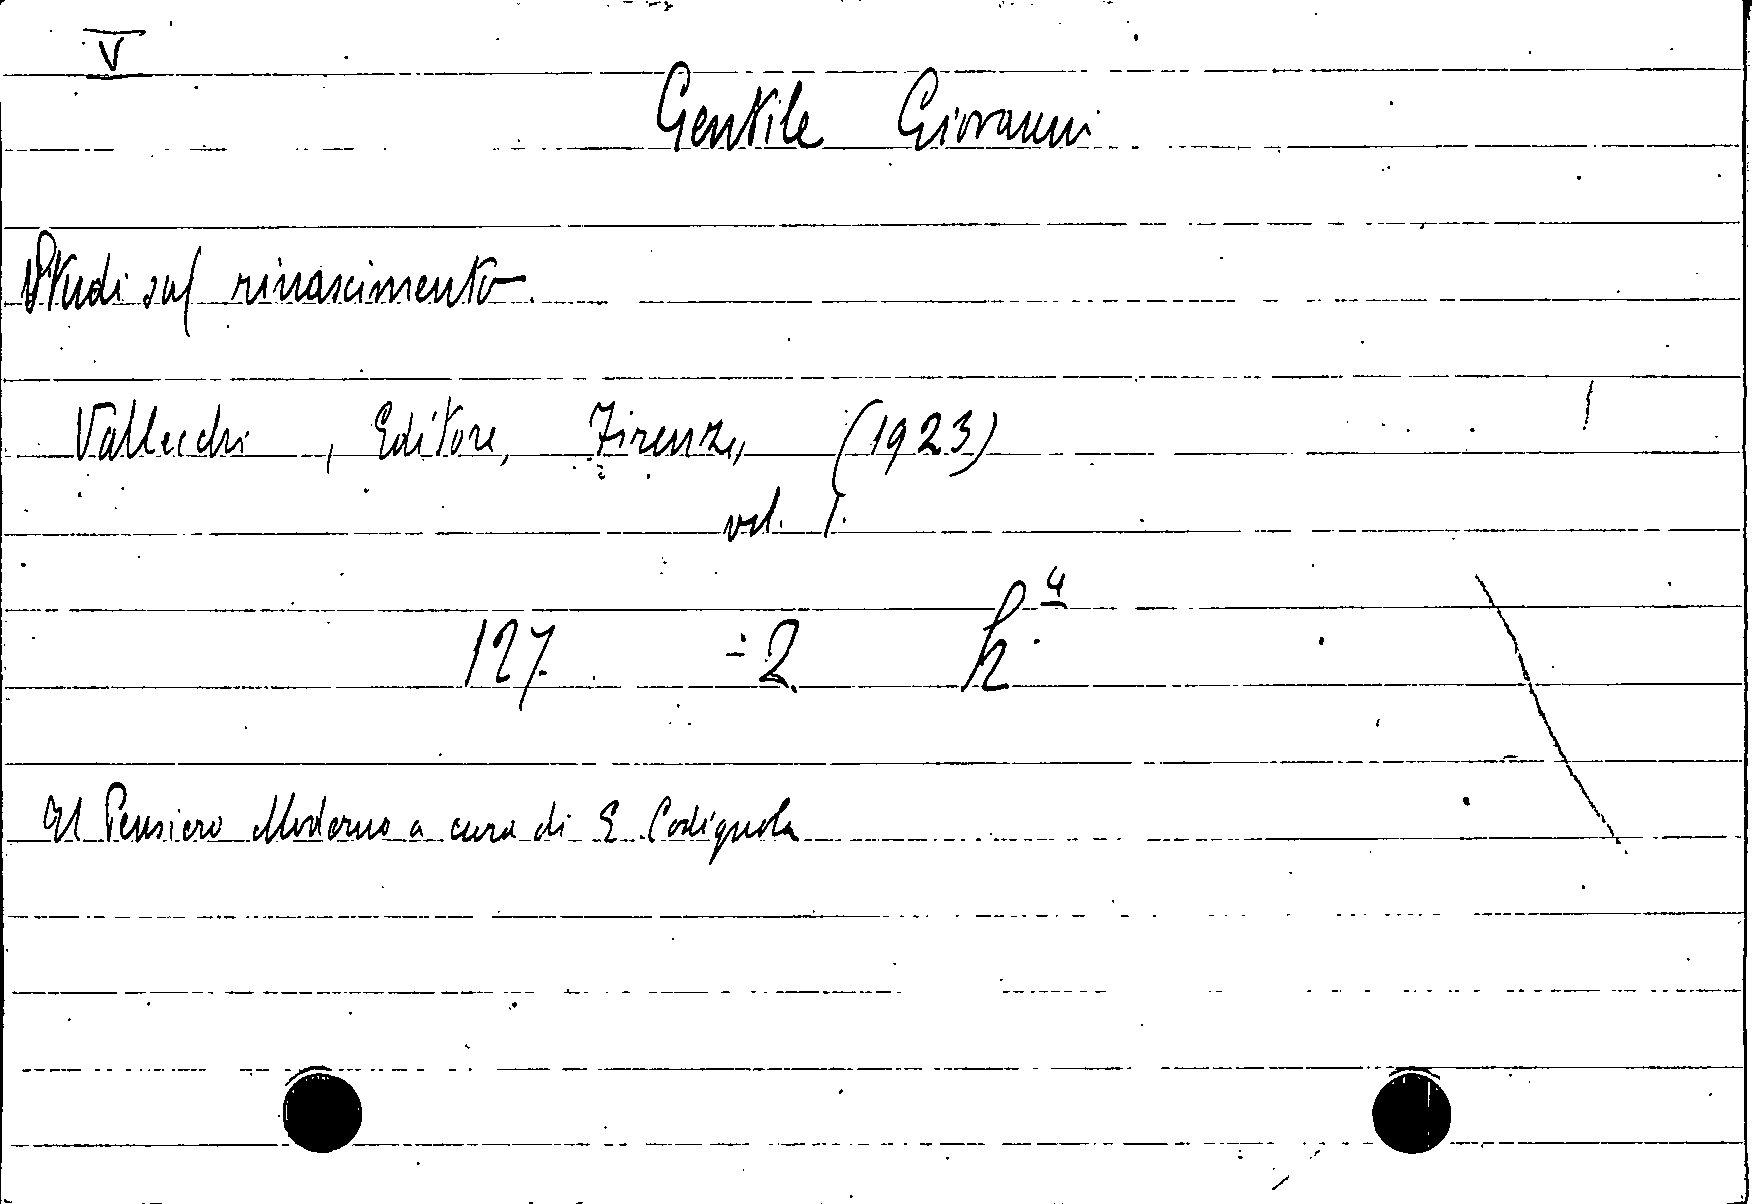 V
Gentile Giovanni
Studi sul rinascimento.
Vallecchi, Editore, Firenze, (1923)
vol. 1.
127 = 2 h 4
Il Pensiero Moderno a cura di E. Codignola